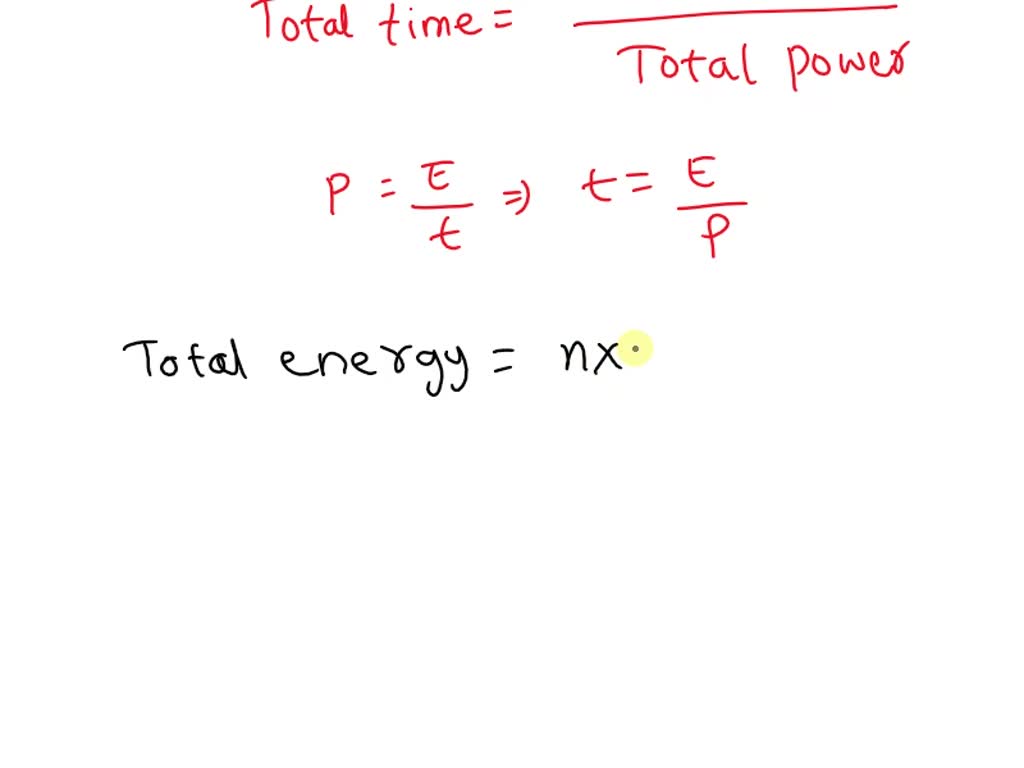 Total time =
Total power
P = E/t ⇒ t = E/P
Total energy = nx